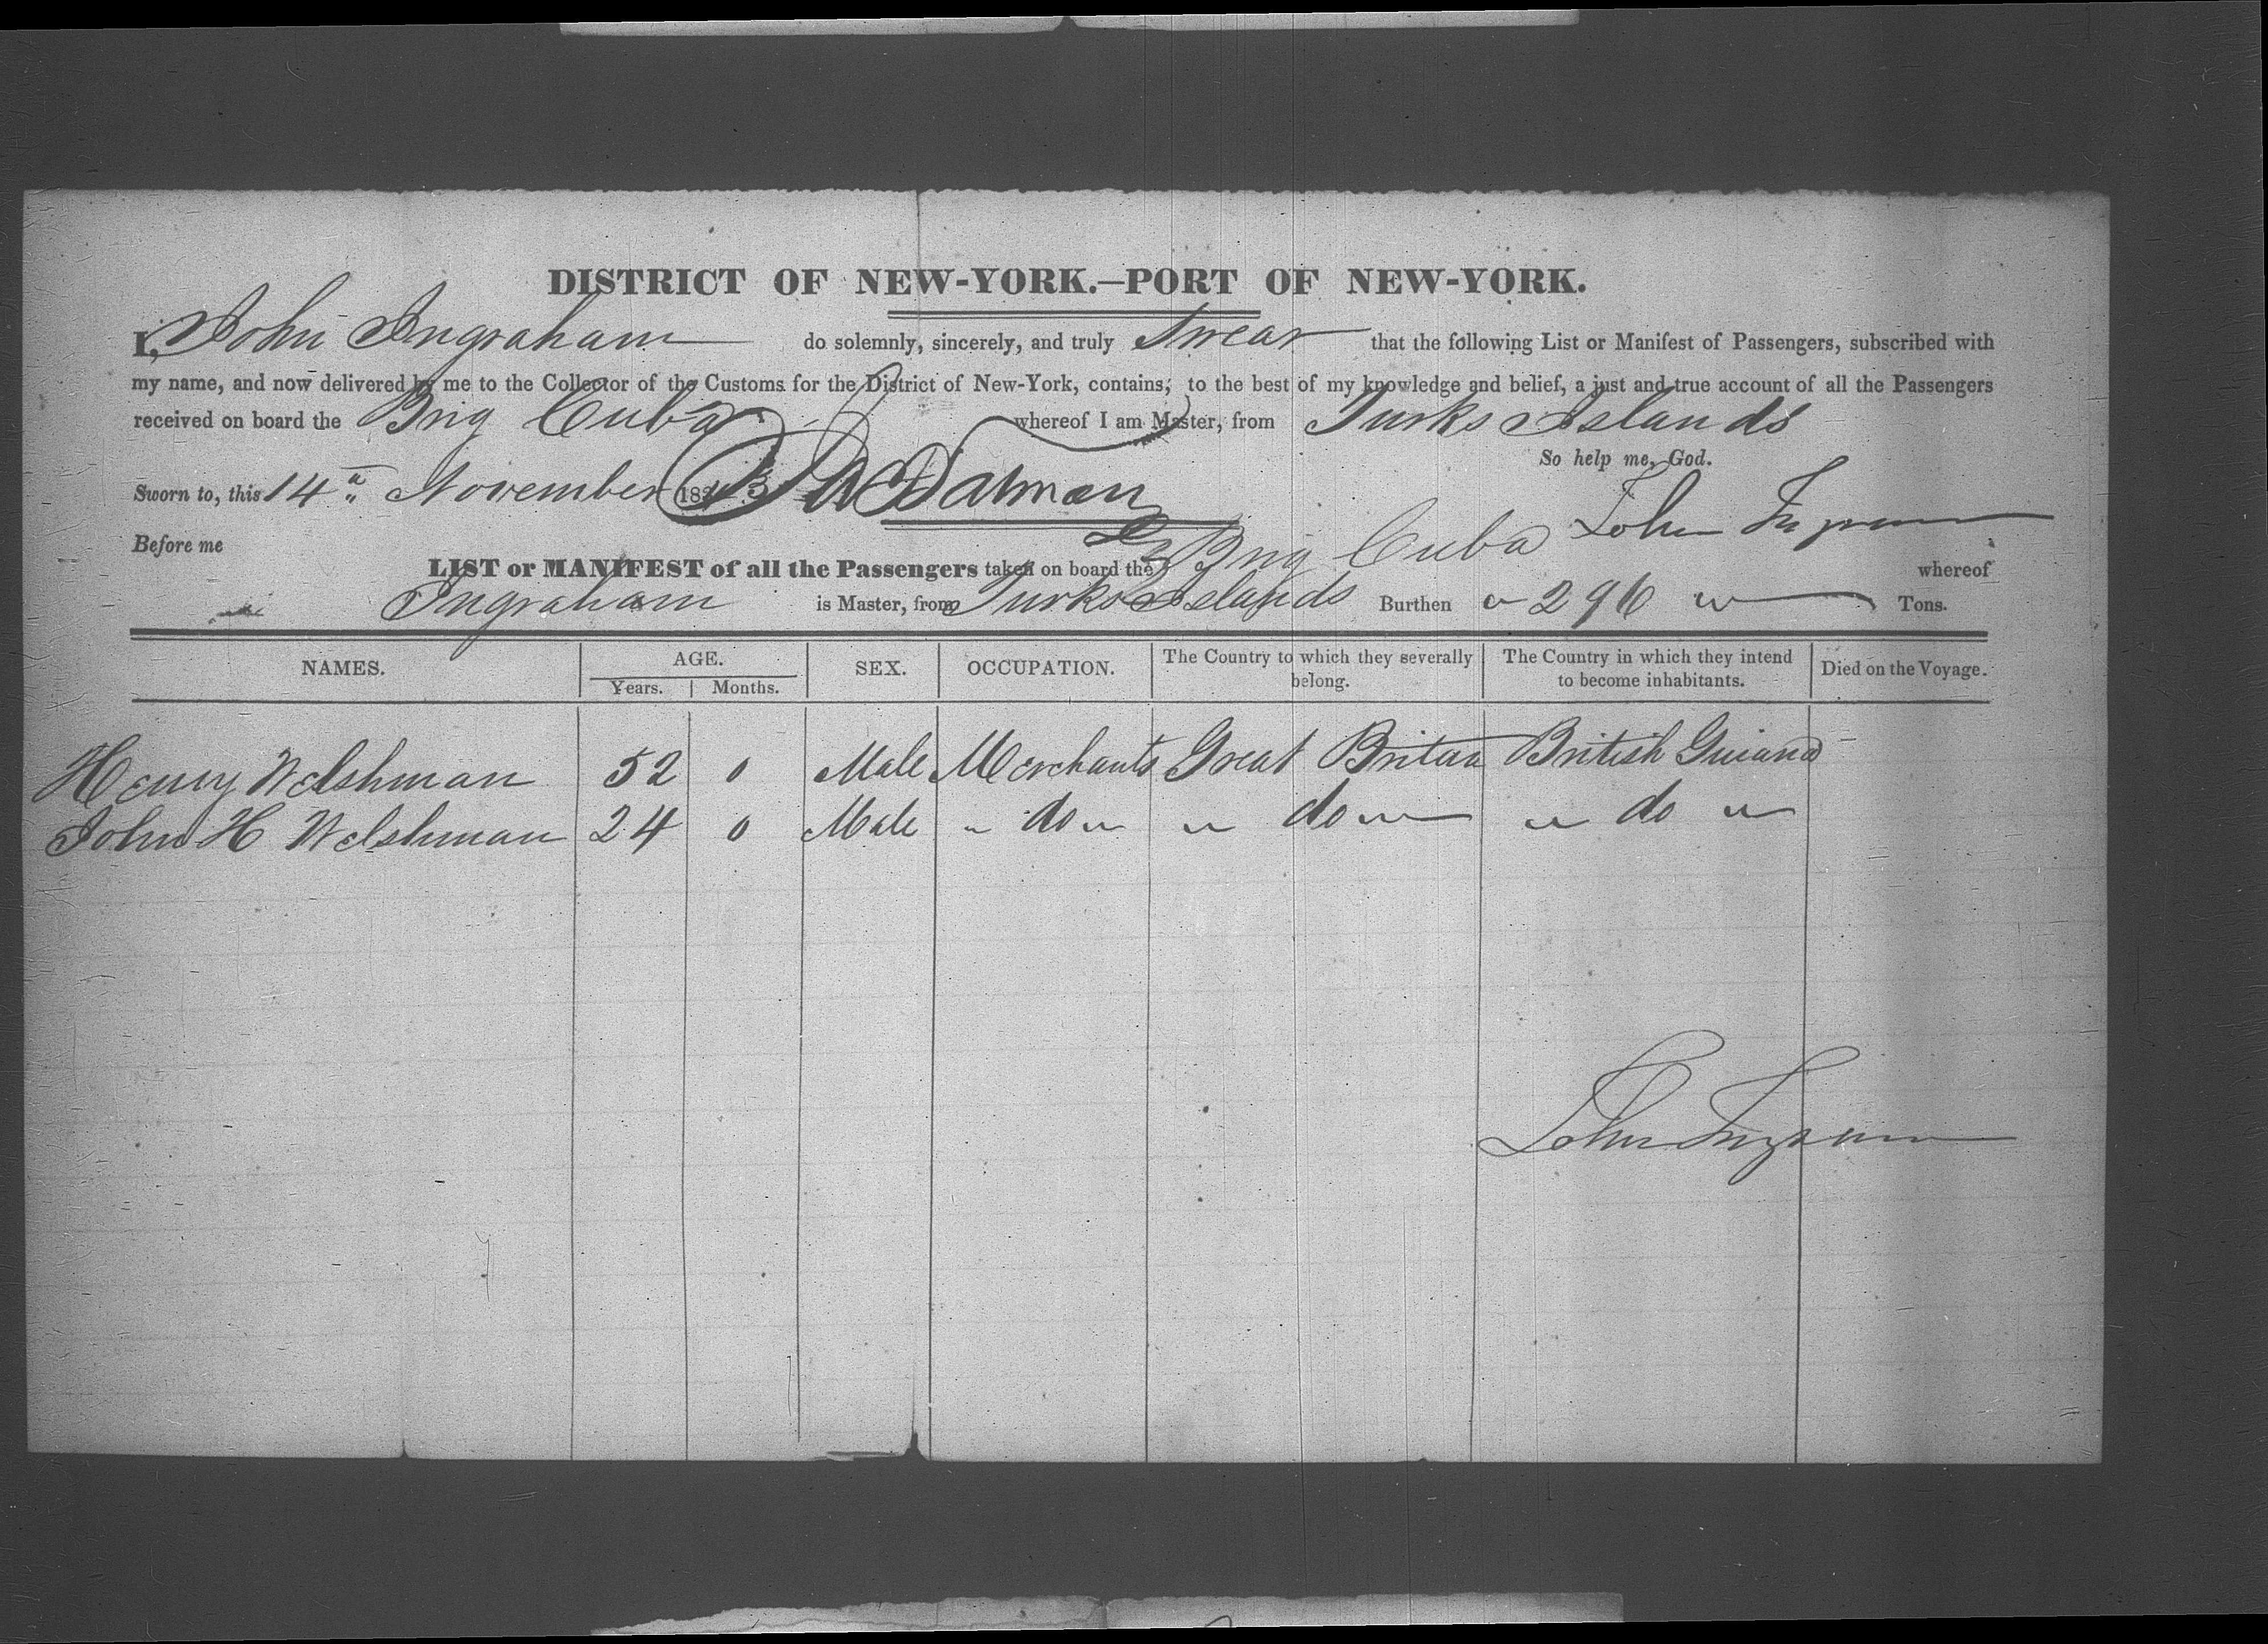 DISTRICT OF NEW-YORK.—PORT OF NEW-YORK.
I, John Ingraham do solemnly, sincerely, and truly Swear that the following List or Manifest of Passengers, subscribed with
my name, and now delivered by me to the Collector of the Customs for the District of New-York, contains, to the best of my knowledge and belief, a just and true account of all the Passengers
received on board the Brig Cuba whereof I am Master, from Turks Islands
So help me, God.
Sworn to, this 14th November 1843
John Ingraham
Before me
LIST or MANIFEST of all the Passengers taken on board the Brig Cuba whereof
Ingraham is Master, from Turks Islands Burthen 296 Tons.
NAMES. AGE. SEX. OCCUPATION. The Country to which they severally belong. The Country in which they intend to become inhabitants. Died on the Voyage.
Years. Months.
Henry Welshman 52 0 Male Merchants Great Britain British Guiana
John H Welshman 24 0 Male " do " " do " " do "
John Ingraham